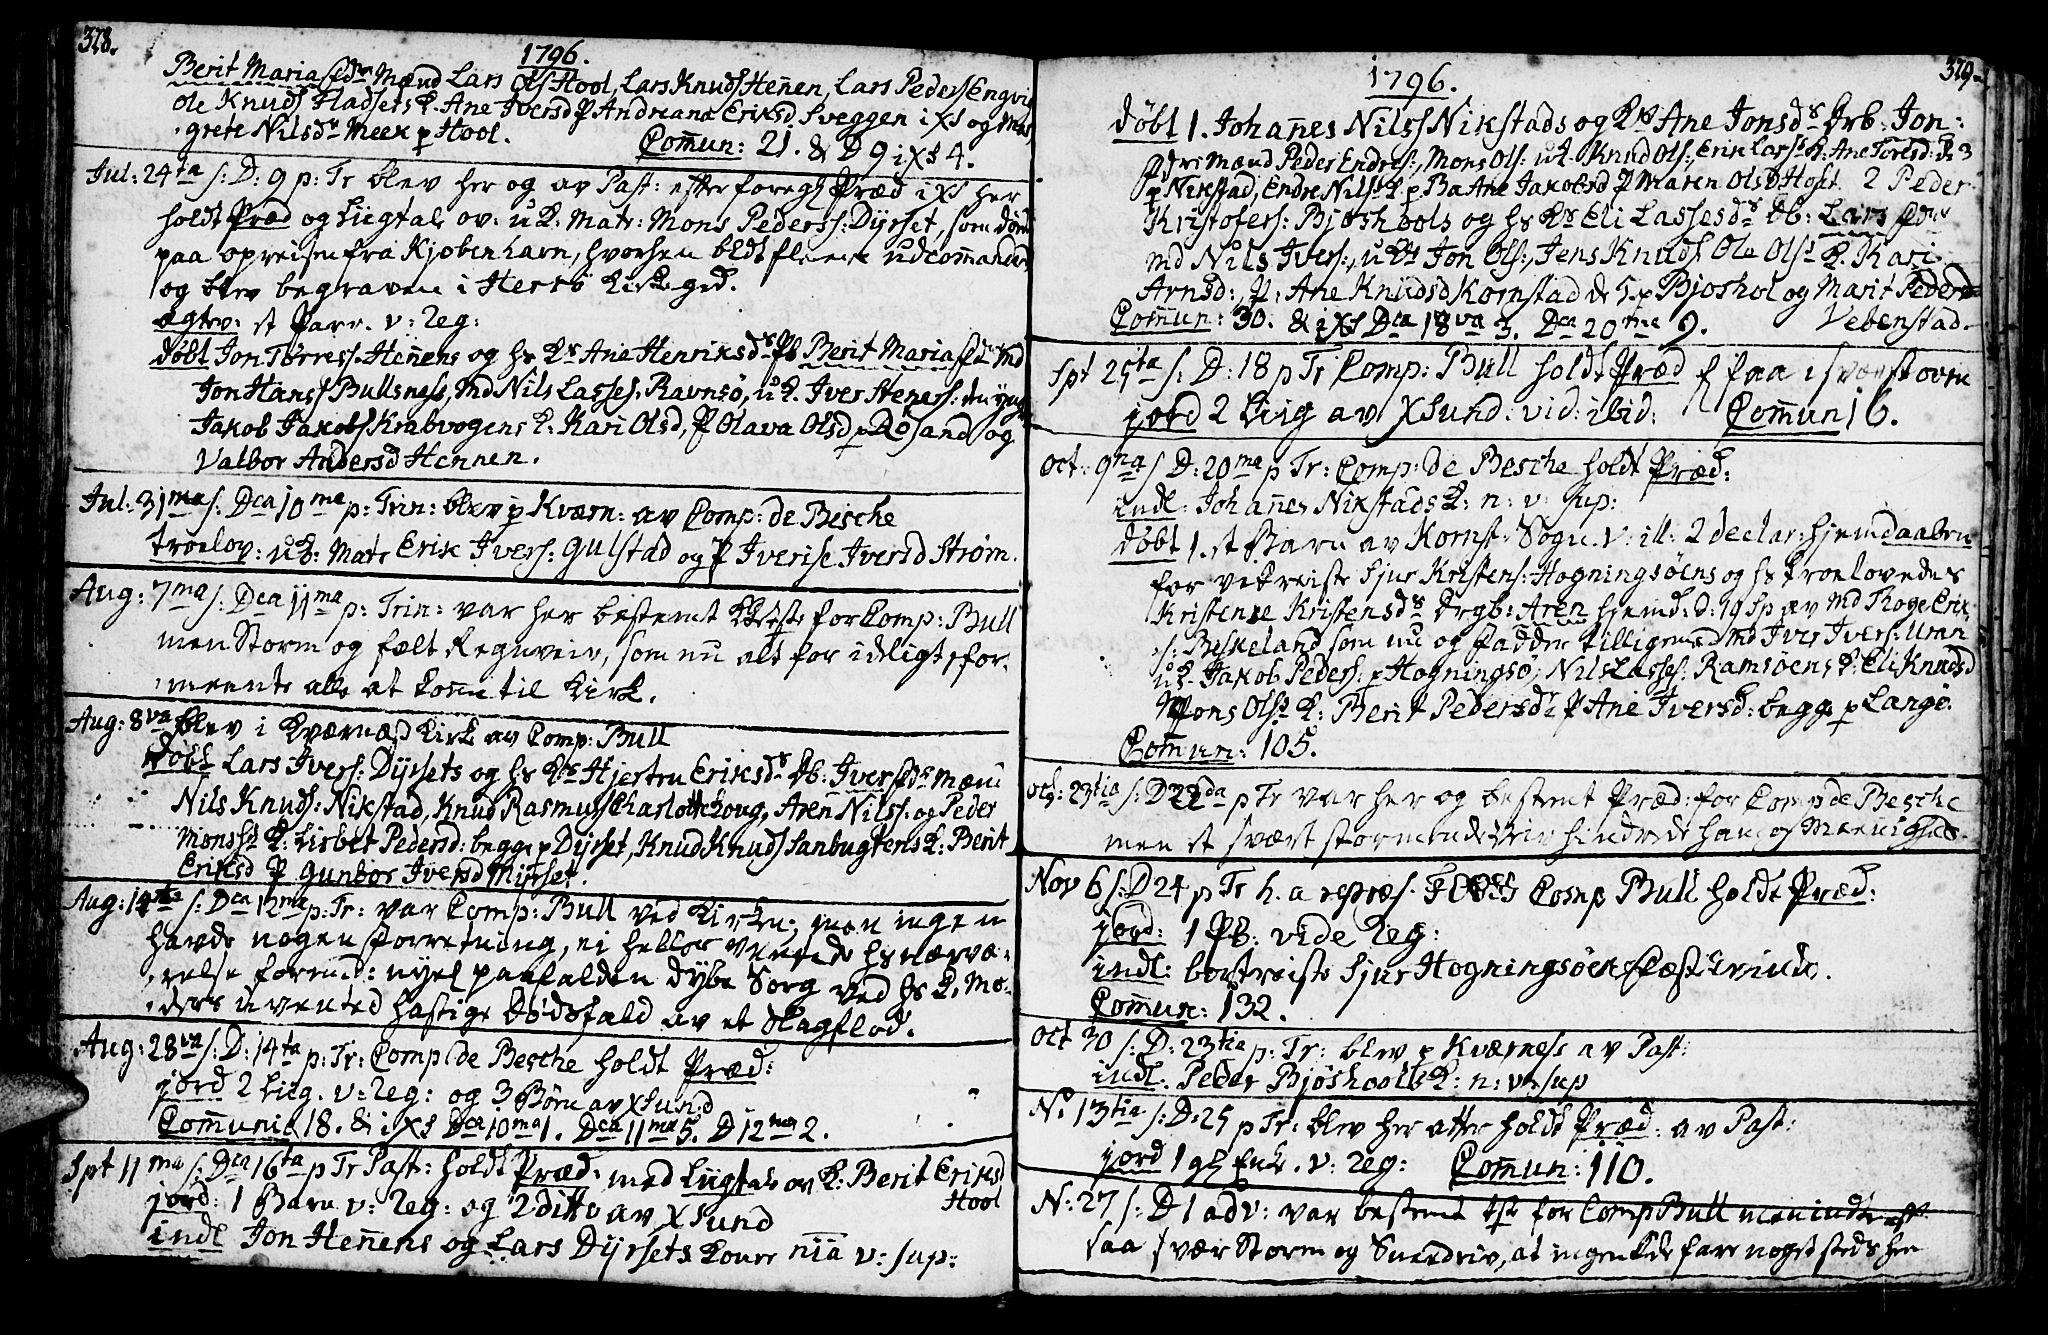 328.
1796.
Berit Maria Mænd Lars Ols Hool, Lars Knuds Heñen, Lars Peders Engvi
Ole Knuds Fladsets K. Ane Iversd P Andreana Eriksd Sveggen i XS og Mar
grete Nilsdr Meek p Hool. Com̄un: 21. & D 9 i XS 4.
Jul: 24ta s: D: 9 p: Tr blev her og av Past: efter foreg Præd i XS her
holdt Præd og Liigtale ov: uK. Matr: Mons Peders: Dyrset, som døde
paa opreisen fra Kjøbenhavn, hvorhen bldt fleere udcom̄anderd
og blev begraven i Herrö Kirkegrd.
ægtev: st Parr. v: Reg:
døbt Jon Torress: Heñens og hs Ks Ane Henriksdrs Pb Berit Maria Md
Jon Hanss Bullsness, Md Nils Lasses: Ravnsø, uK. Iver Steners: den yngr
Jakob Jakobs Krabvogens K: Kari Olsd, P Olava Olsd p Røsand og
Valbor Andersd Hennen.
Jul: 31ma s: Dca 10ma p: Trin: blev p Kværn: av Comp: de Besche
troelov: uK: Matr Erik Ivers: Gulstad og P Iverise Iversd Strøm.
Aug: 7ma s: Dca 11ma p: Trin: var her bestemt for Comp: Bull
men Storm og fælt Regnveir, som nu alt for idligt, for-
meente alle at kom̄e til Kirk.
Aug: 8va blev i Kværnæss Kirk av Comp: Bull
døbt Lars Ivers: Dyrsets og hs Ks Hjertru Eriksdrs Db: Iver Mænd
Nils Knuds: Nikstad, Knud Rasmuss Charlottehoug, Aren Nilss: og Peder
Monss K: Lisbet Pedersd: begge p Dyrset, Knud Knuds Sanbugtens K: Berit
Eriksd P Gunbor Iversd Myrset.
Aug: 14ta s: Dca 12ma p: Tr: var Comp: Bull ved Kirken; men ingen
havde nogen forretning, ei heller ventede hs nærvæ-
relse formed: nyel: paafalden dybe Sorg ved hs K. Mo-
ders uvented hastige dødsfald av et Slagflod.
Aug: 28va s: D: 14ta p: Tr: Comp de Besche holdt Præd:
jord 2 Liig. v: Reg: og 3 Børn av XSund
Com̄unic 18. & i XS Dca 10ma 1. Dca 11ma 5. D 12ma 2.
Spt 11ma s: Dca 16ta p Tr Past: holdt Præd: med Liigtale ov K: Berit Eriksd
jord: 1 Barn v: Reg: og 2 ditto av XSund Hool
indl Jon Heñens og Lars Dyrsets Koner nia v: sup:
329
1796.
Døbt 1. Johañes Nilss Nikstads og Ks Ane Jonsdrs Drb: Jon:
Mænd Peder Endres:, Mons Ols: uK. Knud Ols:, Erik Lass K: Ane Toresd: 3
p Nikstad, Endre Nilss K p Ba Ane Jakobsd P Maren Olsd Host. 2 Peder
Kristofers: Bjøshools og hs Ks Eli Lassesdrs Db: Lars
Md Nils Ivers:, uKs Jon Ols:, Jens Knuds Ole Olss K. Kari
Arnsd:, P: Ane Knudsd Kornstad de 5 p Bjoshol og Marit Peders
Com̄un: 30. & i XS Dca 18va 3. Dca 20ma 9. Vebenstad.
Spt 25ta s: D: 18 p Tr Comp: Bull holdt Præd
jord 2 Liig av XSund: vid: ibid: Com̄un 16.
Oct: 9na s D: 20ma p Tr: Comp: de Besche holdt Præd:
indl: Johañes Nikstads K: n: v: sup:
døbt 1. st Barn av Kornst: Sogn. v: ill: 2 declar: hjemdaaben
for Sjur Kristens: Hogningsöens og hs Troelovedes
Kristense Kristensdrs Drgb: Aren hjemd: d: 19 Sp av Md Thoge Erik
s: Beskeland som nu og fadder tilligemed Md Iver Ivers: Uran
uK. Jakob Peders: p Hogningsø, Nils Lasses: Ramsøens K: Eli Knudsd
Mons Olss K: Berit Pedersdr P Ane Iversd: begge p Langø.
Com̄un: 105.
Oct: 23tia s: D 22da p Tr var her og bestemt Præd: for Comp de Besche
men et svært stormende Veir hindrede han og Meenighed.
Nov 6 s: D 24 p Tr h. a Comp Bull holdt Præd:
jord: 1 PB: vide Reg:
indl: bortreiste Sjur Hogningsöens Fæst
Com̄un: 132.
Oct 30 s: D: 23tia p: Tr: blev p Kværness av Past:
indl: Peder Bjøshools K: n: v: sup
N: 13tia s: D: 25 p Tr: blev her atter holdt Præd: av Past:
jord 1 Enk. v: Reg: Com̄un: 110.
N: 27 s: D 1 adv: var bestemt for Comp Bull men
saa svær Storm og Sneedriv, at ingen kde fare noget steds hen